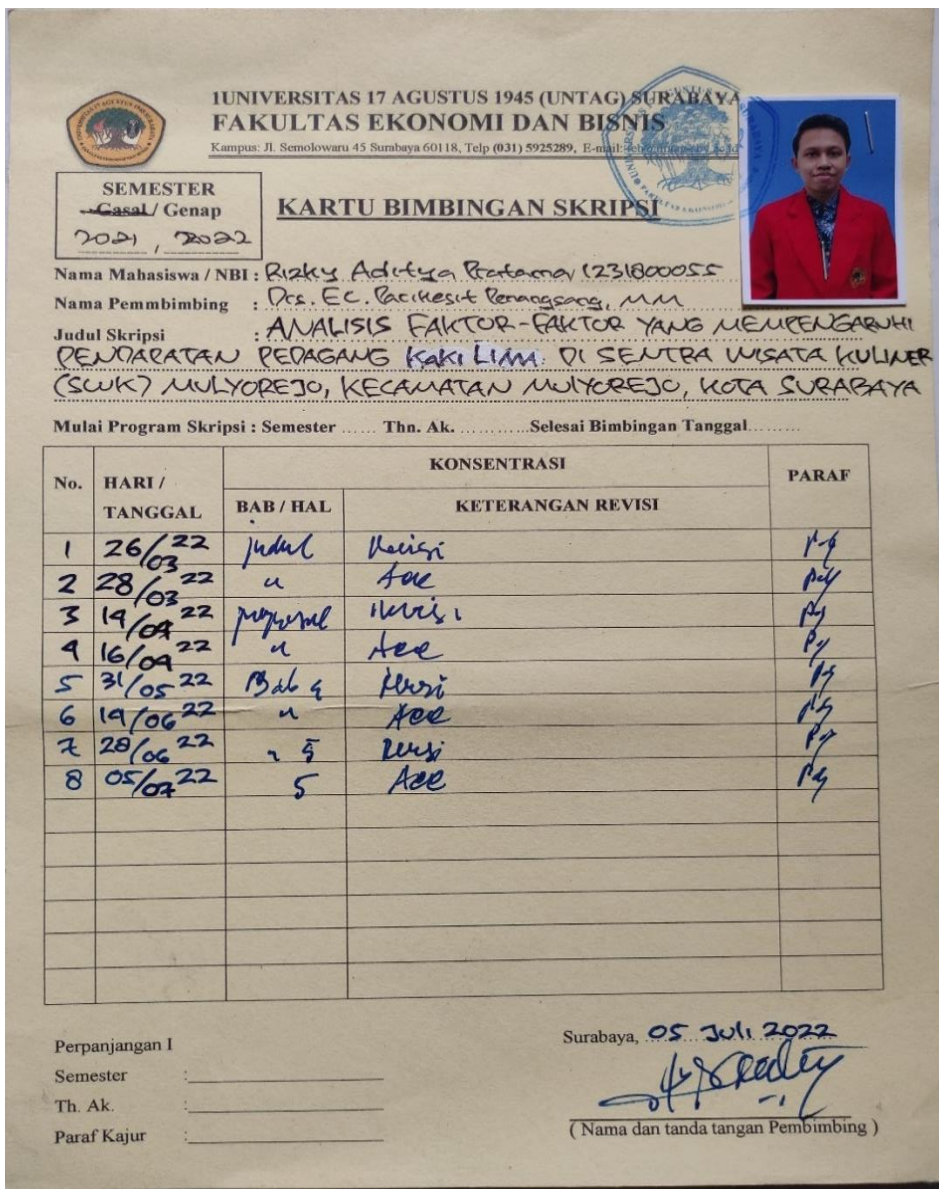 1UNIVERSITAS 17 AGUSTUS 1945 (UNTAG) SURABAYA
FAKULTAS EKONOMI DAN BISNIS
Kampus: Jl. Semolowaru 45 Surabaya 60118, Telp (031) 5925289, E-mail:
SEMESTER
Gasal / Genap
2021 , 2022
KARTU BIMBINGAN SKRIPSI
Nama Mahasiswa / NBI : Rizky Aditya Pratama / 1231800055
Nama Pemmbimbing : Drs. EC. Panangsang, MM
Judul Skripsi : ANALISIS FAKTOR-FAKTOR YANG MEMPENGARUHI
PENDAPATAN PEDAGANG KAKI LIMA DI SENTRA WISATA KULINER
(SWK) MULYOREJO, KECAMATAN MULYOREJO, KOTA SURABAYA
Mulai Program Skripsi : Semester ...... Thn. Ak. ............Selesai Bimbingan Tanggal.........
No. HARI / TANGGAL KONSENTRASI PARAF
BAB / HAL KETERANGAN REVISI
1 26/03 22 judul Revisi
2 28/03 22 " Acc
3 14/04 22 proposal revisi
4 16/04 22 " Acc
5 31/05 22 Bab 4 Revisi
6 14/06 22 " Acc
7 28/06 22 " 5 Revisi
8 05/07 22 5 Acc
Perpanjangan I
Semester :
Th. Ak. :
Paraf Kajur :
Surabaya, 05 Juli 2022
( Nama dan tanda tangan Pembimbing )